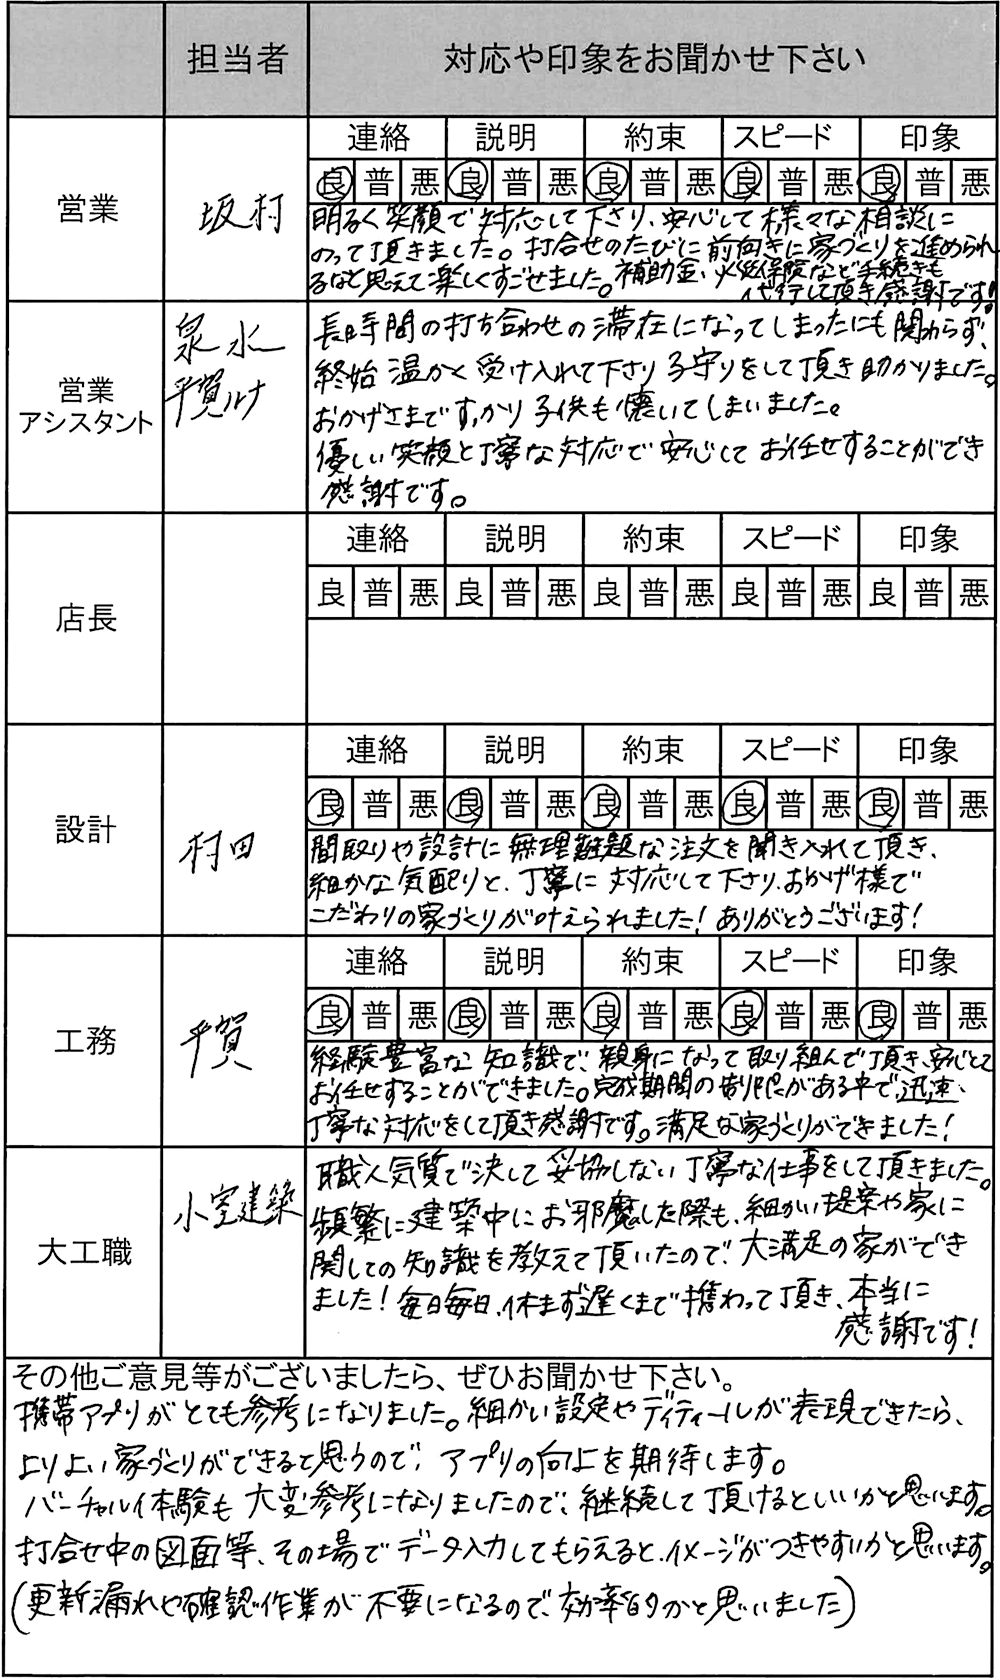 担当者 対応や印象をお聞かせ下さい
連絡 説明 約束 スピード 印象
営業 坂村 良 普 悪 良 普 悪 良 普 悪 良 普 悪 良 普 悪
明るく笑顔で対応して下さり、安心して様々な相談に
のって頂きました。打合せのたびに前向きに家づくりを進められ
るなと思えて楽しくすごせました。補助金、火災保険など手続きも
代行して頂き感謝です!
営業
アシスタント
泉水
平賀ルナ
長時間の打ち合わせの滞在になってしまったにも関わらず、
終始温かく受け入れて下さり子守りをして頂き助かりました。
おかげさまですっかり子供も懐いてしまいました。
優しい笑顔と丁寧な対応で安心してお任せすることができ
感謝です。
連絡 説明 約束 スピード 印象
店長 良 普 悪 良 普 悪 良 普 悪 良 普 悪 良 普 悪
連絡 説明 約束 スピード 印象
設計 村田 良 普 悪 良 普 悪 良 普 悪 良 普 悪 良 普 悪
間取りや設計に無理難題な注文を聞き入れて頂き、
細かな気配りと、丁寧に対応して下さり、おかげ様で
こだわりの家づくりが叶えられました!ありがとうございます!
連絡 説明 約束 スピード 印象
工務 平賀 良 普 悪 良 普 悪 良 普 悪 良 普 悪 良 普 悪
経験豊富な知識で、親身になって取り組んで頂き、安心して
お任せすることができました。完成期間の制限がある中で、迅速、
丁寧な対応をして頂き感謝です。満足な家づくりができました!
大工職 小室建築
職人気質で決して妥協しない丁寧な仕事をして頂きました。
頻繁に建築中にお邪魔した際も、細かい提案や家に
関しての知識を教えて頂いたので、大満足の家ができ
ました!毎日毎日、休まず遅くまで携わって頂き、本当に
感謝です!
その他ご意見等がございましたら、ぜひお聞かせ下さい。
携帯アプリがとても参考になりました。細かい設定やディティールが表現できたら、
よりよい家づくりができると思うので、アプリの向上を期待します。
バーチャルイ体験も大変参考になりましたので、継続して頂けるといいかと思います。
打合せ中の図面等、その場でデータ入力してもらえると、イメージがつきやすいかと思います。
(更新漏れや確認作業が不要になるので、効率的かと思いました)